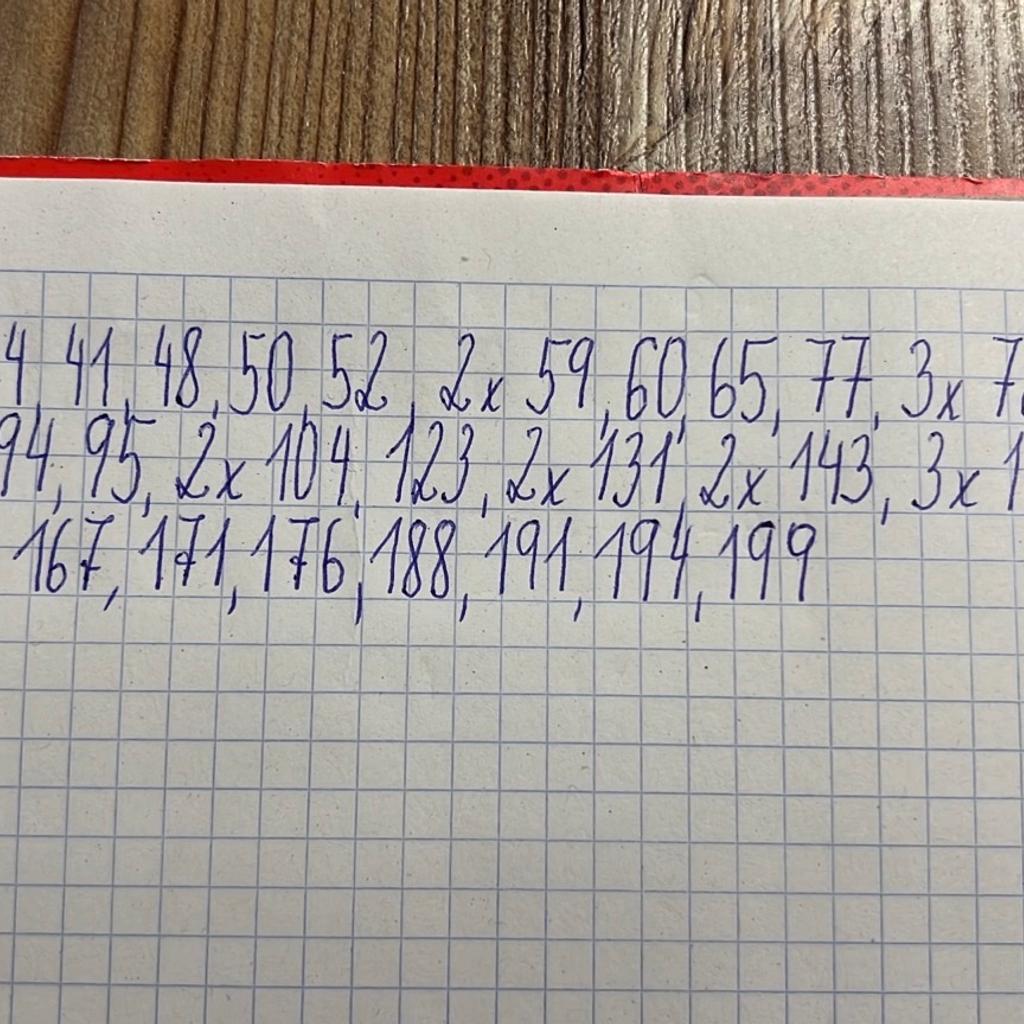 4, 41, 48, 50, 52, 2x 59, 60, 65, 77, 3x 7
94, 95, 2x 104, 123, 2x 131, 2x 143, 3x 1
167, 171, 176, 188, 191, 194, 199